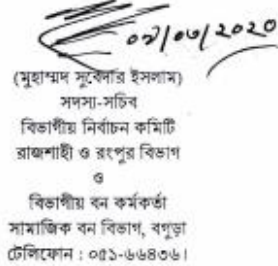 ০৯/০৩/২০২০
(মুহাম্মদ সুবেদার ইসলাম)
সদস্য-সচিব
বিভাগীয় নির্বাচন কমিটি
রাজশাহী ও রংপুর বিভাগ
ও
বিভাগীয় বন কর্মকর্তা
সামাজিক বন বিভাগ, বগুড়া
টেলিফোন : ০৫১-৬৬৪৩৬।